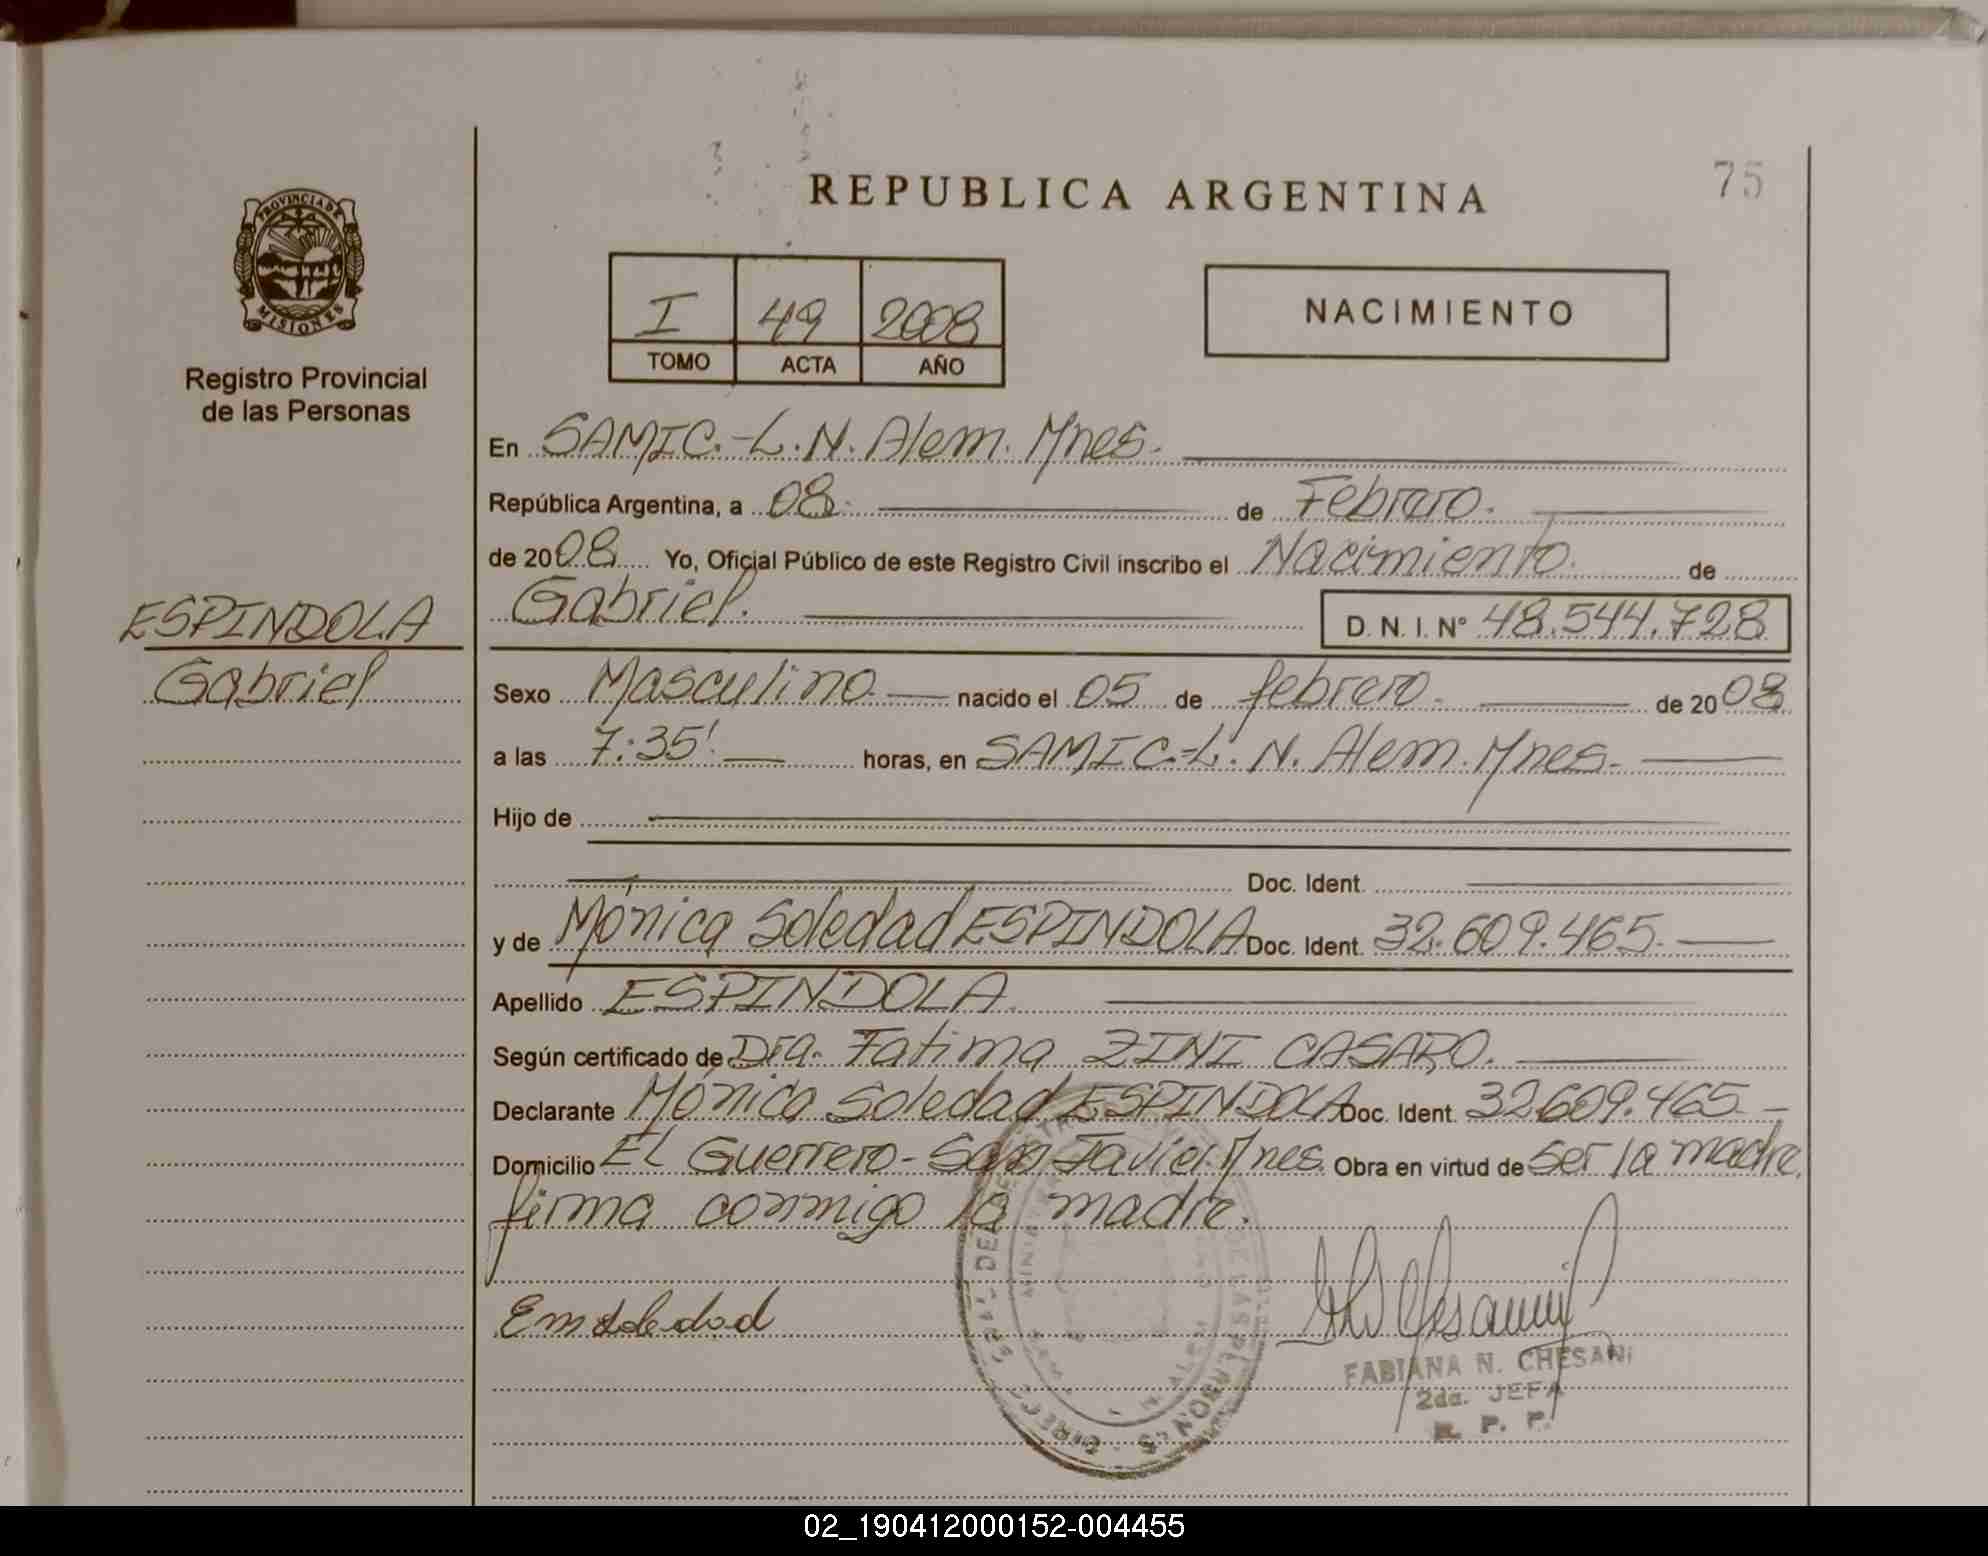 75
REPUBLICA ARGENTINA
PROVINCIA DE
MISIONES
Registro Provincial
de las Personas
I 49 2008
TOMO ACTA AÑO
NACIMIENTO
En SAMIC.-L.N. Alem. Mnes.
República Argentina, a 08. de Febrero.
de 2008 Yo, Oficial Público de este Registro Civil inscribo el Nacimiento. de
Gabriel. D.N.I. Nº 48.544.728
ESPINDOLA
Gabriel
Sexo Masculino. nacido el 05 de febrero. de 2008
a las 7:35'. horas, en SAMIC.-L.N. Alem. Mnes.
Hijo de
Doc. Ident.
y de Mónica Soledad ESPINDOLA Doc. Ident. 32.609.465.
Apellido ESPINDOLA.
Según certificado de Dra. Fatima ZINI CASARO.
Declarante Mónica Soledad ESPINDOLA Doc. Ident. 32.609.465
Domicilio EL Guerrero - San Javier. Mnes. Obra en virtud de ser la madre,
firma conmigo la madre.
FABIANA N. CHESANI
2da. JEFA
R. P. P.
02_190412000152-004455